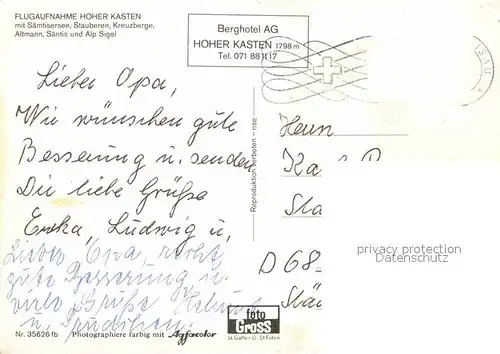 FLUGAUFNAHME HOHER KASTEN
mit Sämtisersee, Stauberen, Kreuzberge,
Altmann, Säntis und Alp Sigel
Berghotel AG
HOHER KASTEN 1798 m
Tel. 071 88 11 17
Lieber Opa,
Wir wünschen gute
Besserung u. senden
Dir liebe Grüße
Erika, Ludwig u,
Lieber Opa, recht
gute Besserung u.
viele Grüße Helmut
u. Trudchen.
Reproduktion verboten - nse
Herrn
Ka
Sta
D 68-
Stä
privacy protection
Datenschutz
Nr. 35626 fb Photographiere farbig mit Agfacolor
foto
GROSS
St.Gallen O. St.Fiden